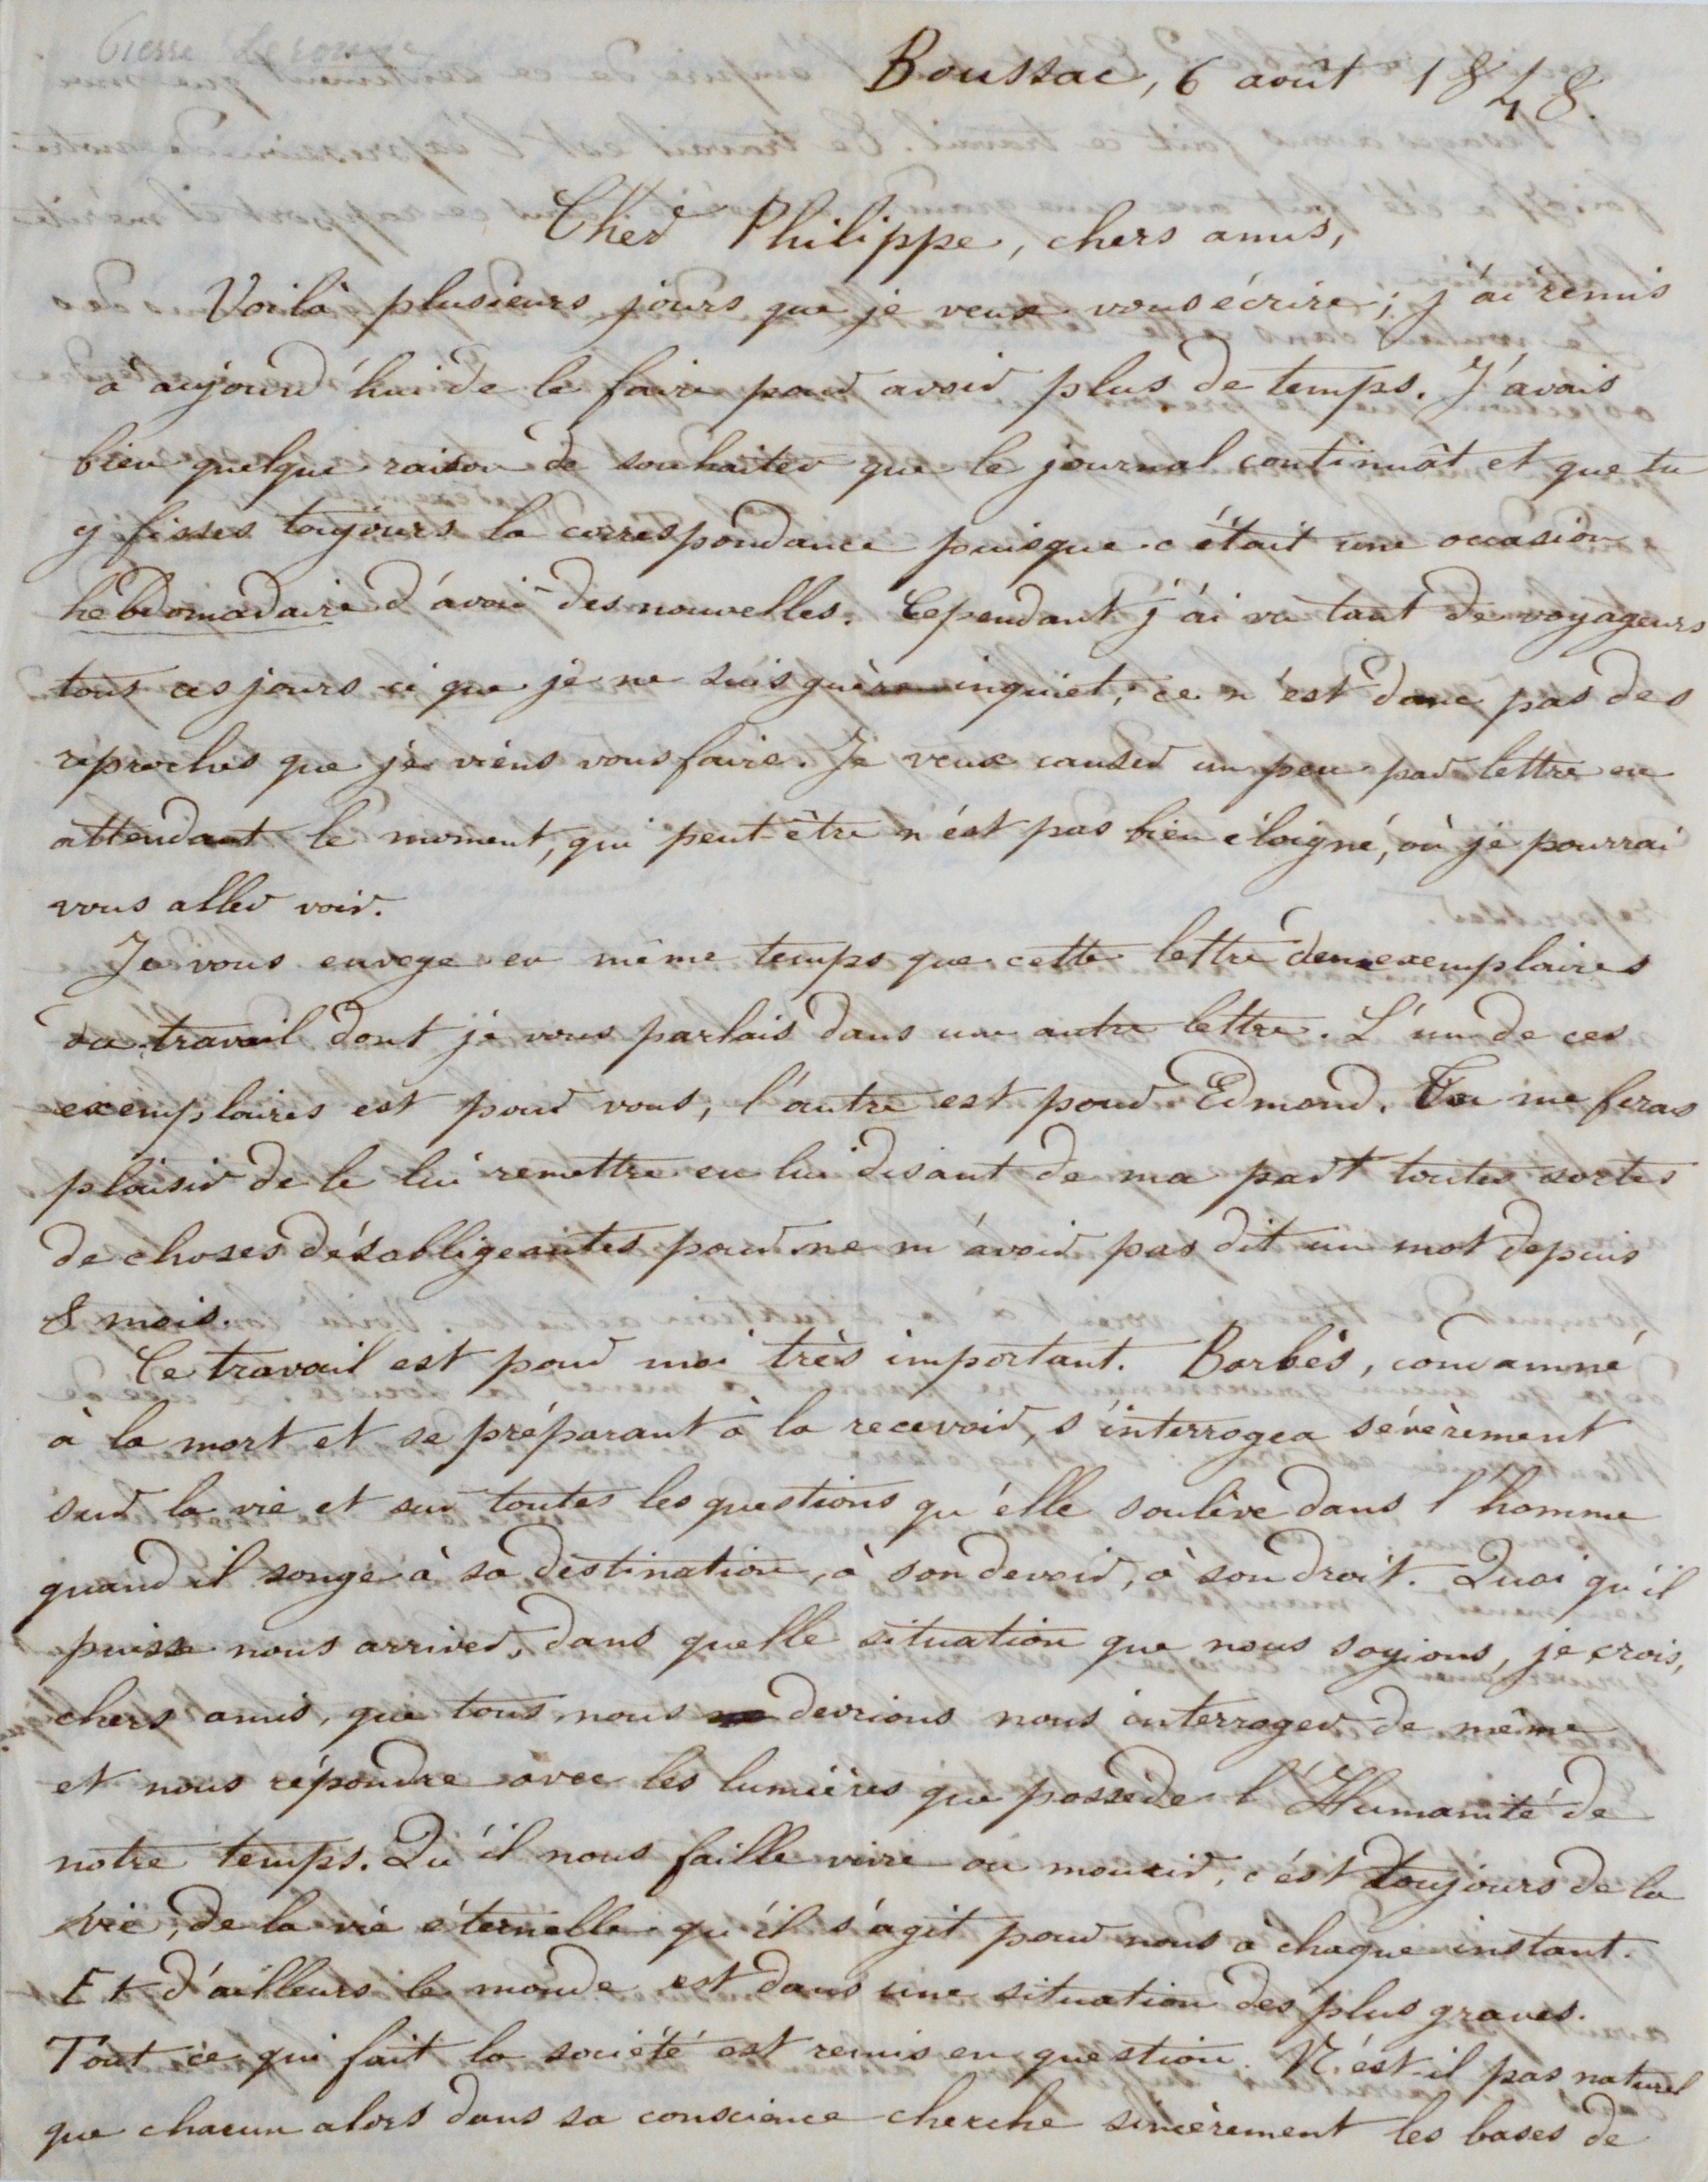 Pierre Leroux
Boussac, 6 août 1848.
Cher Philippe, chers amis,
Voilà plusieurs jours que je veux vous écrire ; j'ai remis
à aujourd'hui de le faire pour avoir plus de temps. J'avais
bien quelque raison de souhaiter que le journal continuât et que tu
y fisses toujours la correspondance puisque c'était une occasion
hebdomadaire d'avoir des nouvelles. Cependant j'ai vu tant de voyageurs
tous ces jours ci que je ne suis guère inquiet ; ce n'est donc pas des
reproches que je viens vous faire. Je veux causer un peu par lettre en
attendant le moment, qui peut-être n'est pas bien éloigné, où je pourrai
vous aller voir.
Je vous envoye en même temps que cette lettre deux exemplaires
du travail dont je vous parlais dans une autre lettre. L'un de ces
exemplaires est pour vous, l'autre est pour Edmond. Tu me feras
plaisir de le lui remettre en lui disant de ma part toutes sortes
de choses désobligeantes pour ne m'avoir pas dit un mot depuis
8 mois.
Ce travail est pour moi très important. Barbès, condamné
à la mort et se préparant à la recevoir, s'interrogea sévèrement
sur la vie et sur toutes les questions qu'elle soulève dans l'homme
quand il songe à sa destination, à son devoir, à son droit. Quoi qu'il
puisse nous arriver, dans quelle situation que nous soyions, je crois,
chers amis, que tous nous devrions nous interroger de même
et nous répondre avec les lumières que possede l'Humanité de
notre temps. Qu'il nous faille vivre ou mourir, c'est toujours de la
vie, de la vie éternelle qu'il s'agit pour nous à chaque instant.
Et d'ailleurs le monde est dans une situation des plus graves.
Tout ce qui fait la société est remis en question. N'est-il pas naturel
que chacun alors dans sa conscience cherche sincèrement les bases de